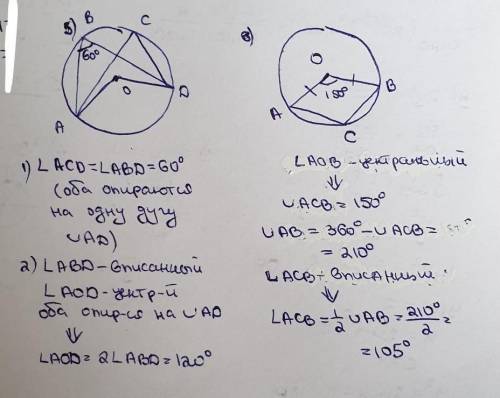 5) B C
60°
O D
A
1) ∠ACD=∠ABD=60°
(оба опираются
на одну дугу
∪AD)
2) ∠ABD-вписанный
∠AOD-центр-й
оба опир-ся на ∪AD
⇓
∠AOD=2∠ABD=120°
6)
O
150° B
A
C
∠AOB-центральный
⇓
∪ACB=150°
∪AB=360°-∪ACB=
=210°
∠ACB-вписанный
⇓
∠ACB=1/2∪AB=210°/2=
=105°